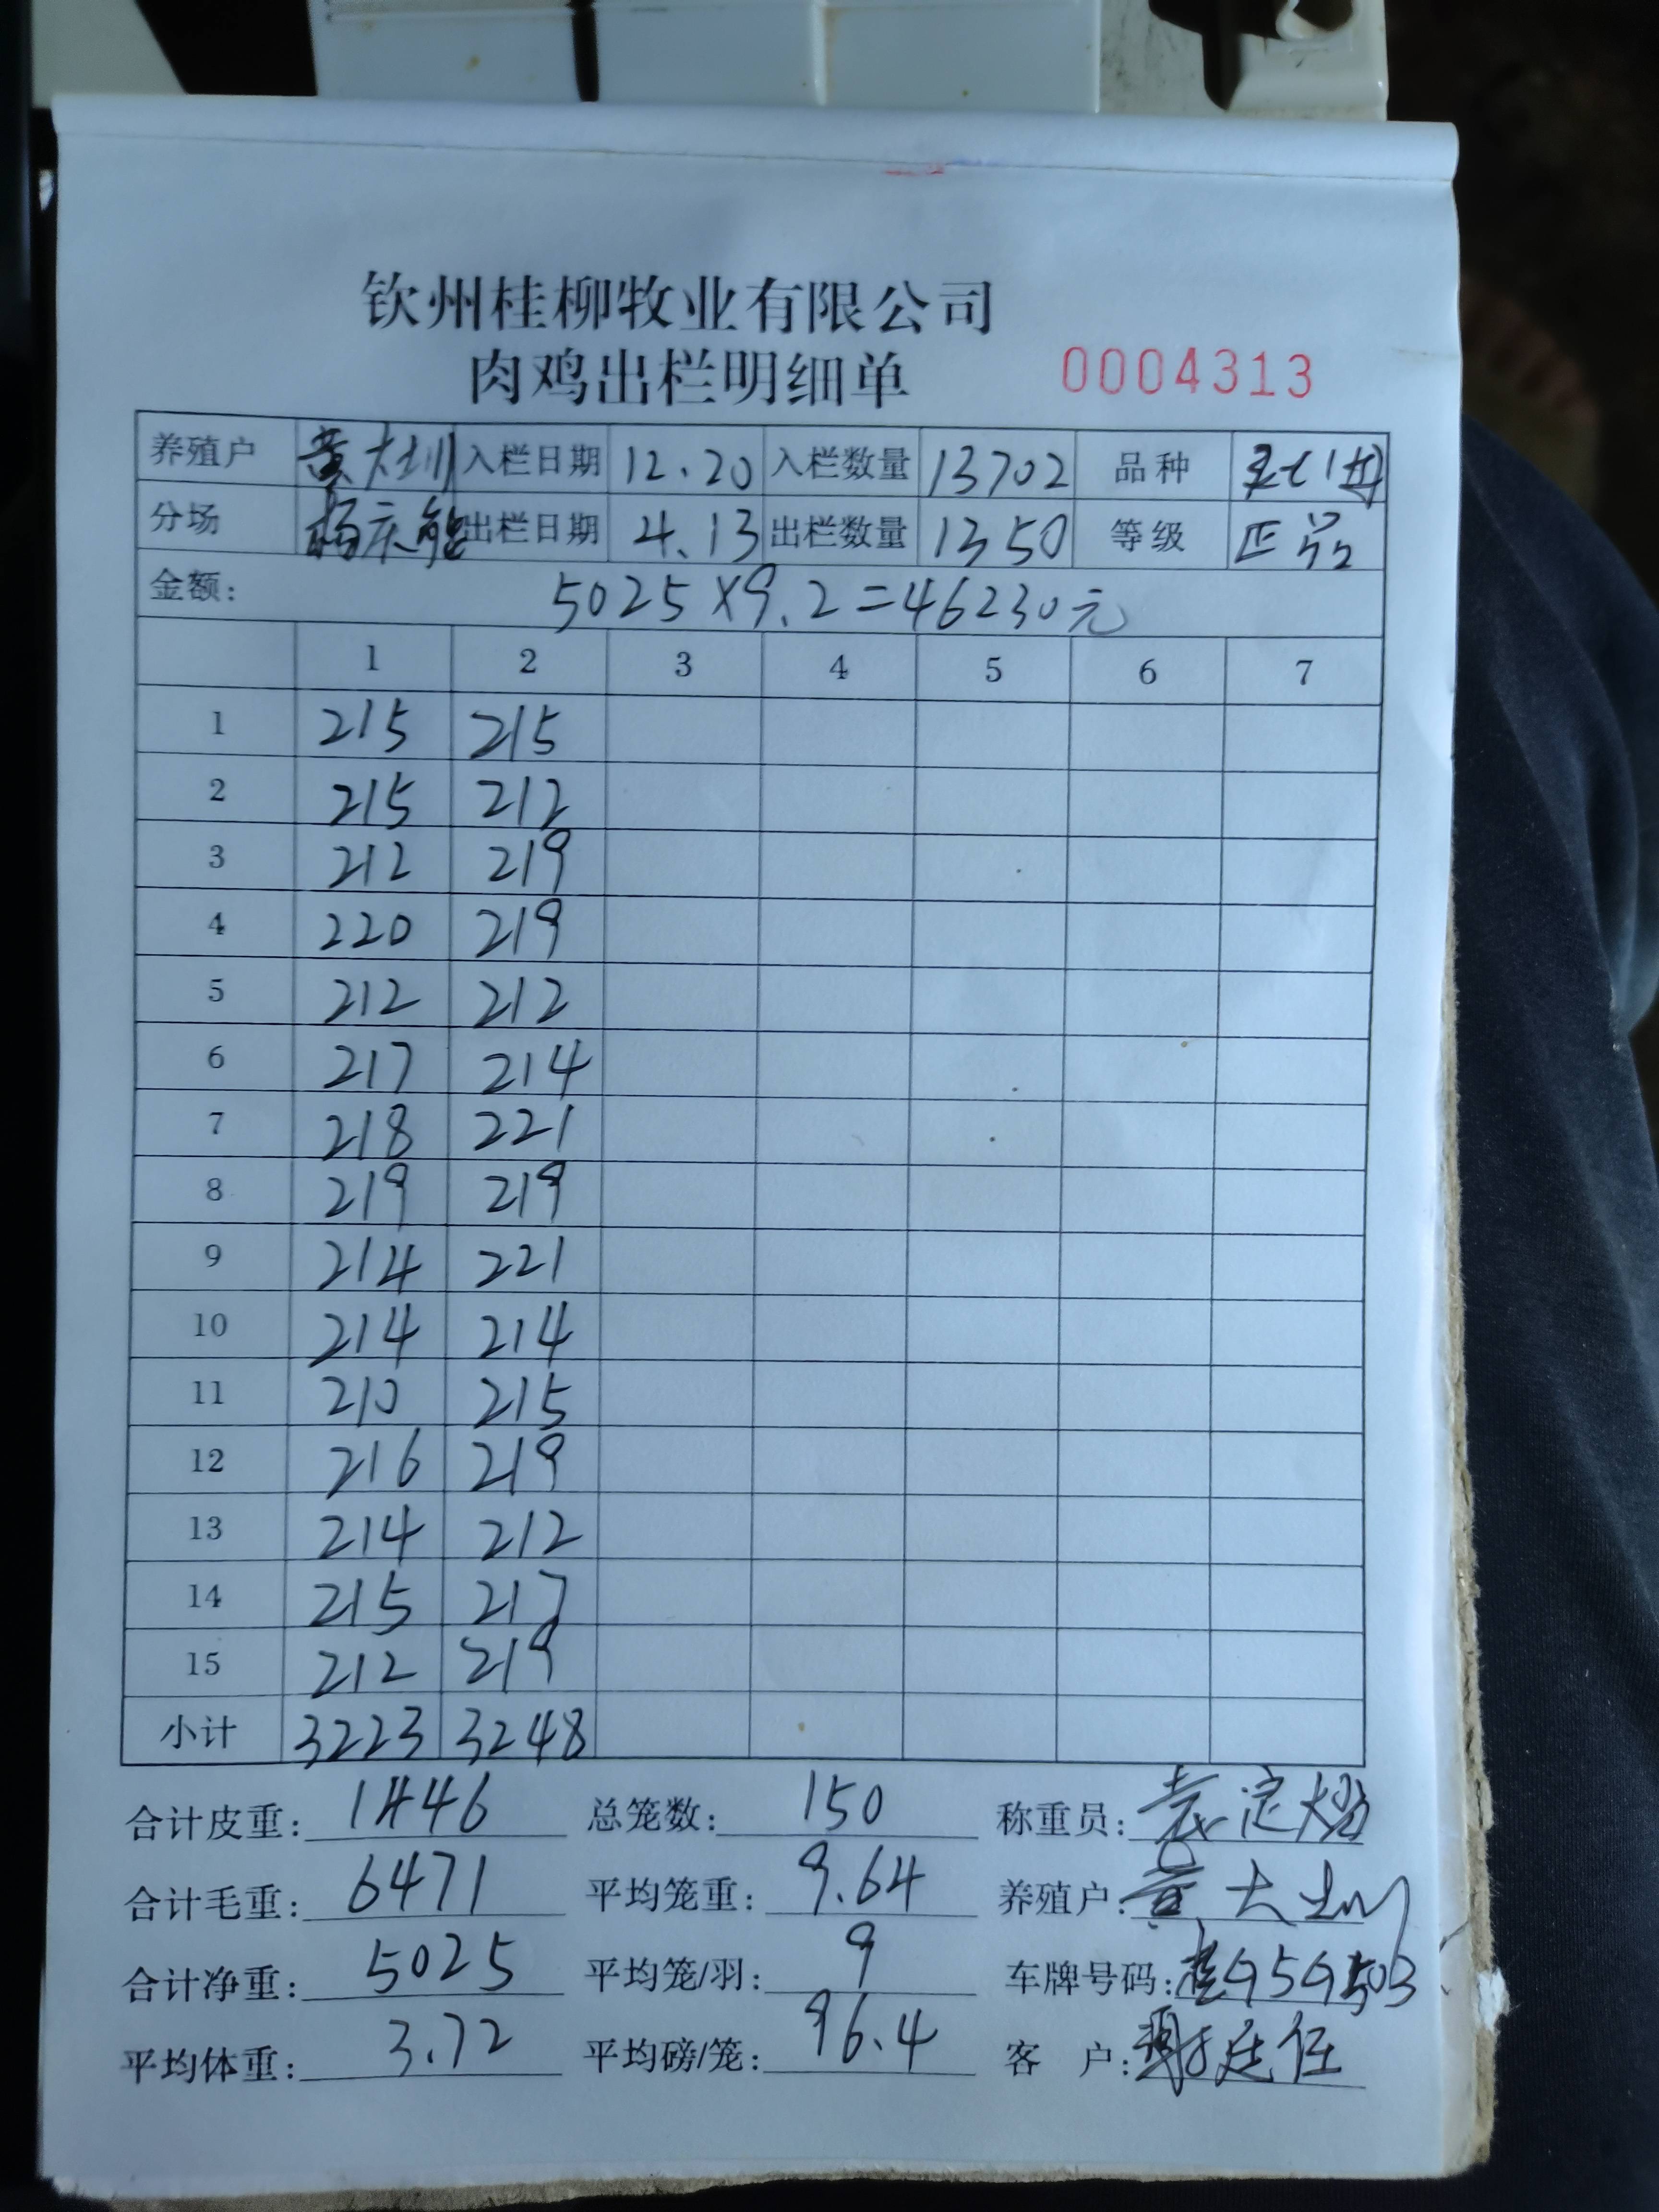 钦州桂柳牧业有限公司
肉鸡出栏明细单 0004313
养殖户 黄大圳 入栏日期 12.20 入栏数量 13702 品种
分场 杨庆能 出栏日期 4.13 出栏数量 1350 等级 正品
金额: 5025×9.2=46230元
1 2 3 4 5 6 7
1 215 215
2 215 212
3 212 219
4 220 219
5 212 212
6 217 214
7 218 221
8 219 219
9 214 221
10 214 214
11 210 215
12 216 219
13 214 212
14 215 217
15 212 219
小计 3223 3248
合计皮重: 1446 总笼数: 150 称重员:
合计毛重: 6471 平均笼重: 9.64 养殖户: 黄大圳
合计净重: 5025 平均笼/羽: 9 车牌号码:
平均体重: 3.72 平均磅/笼: 96.4 客 户: